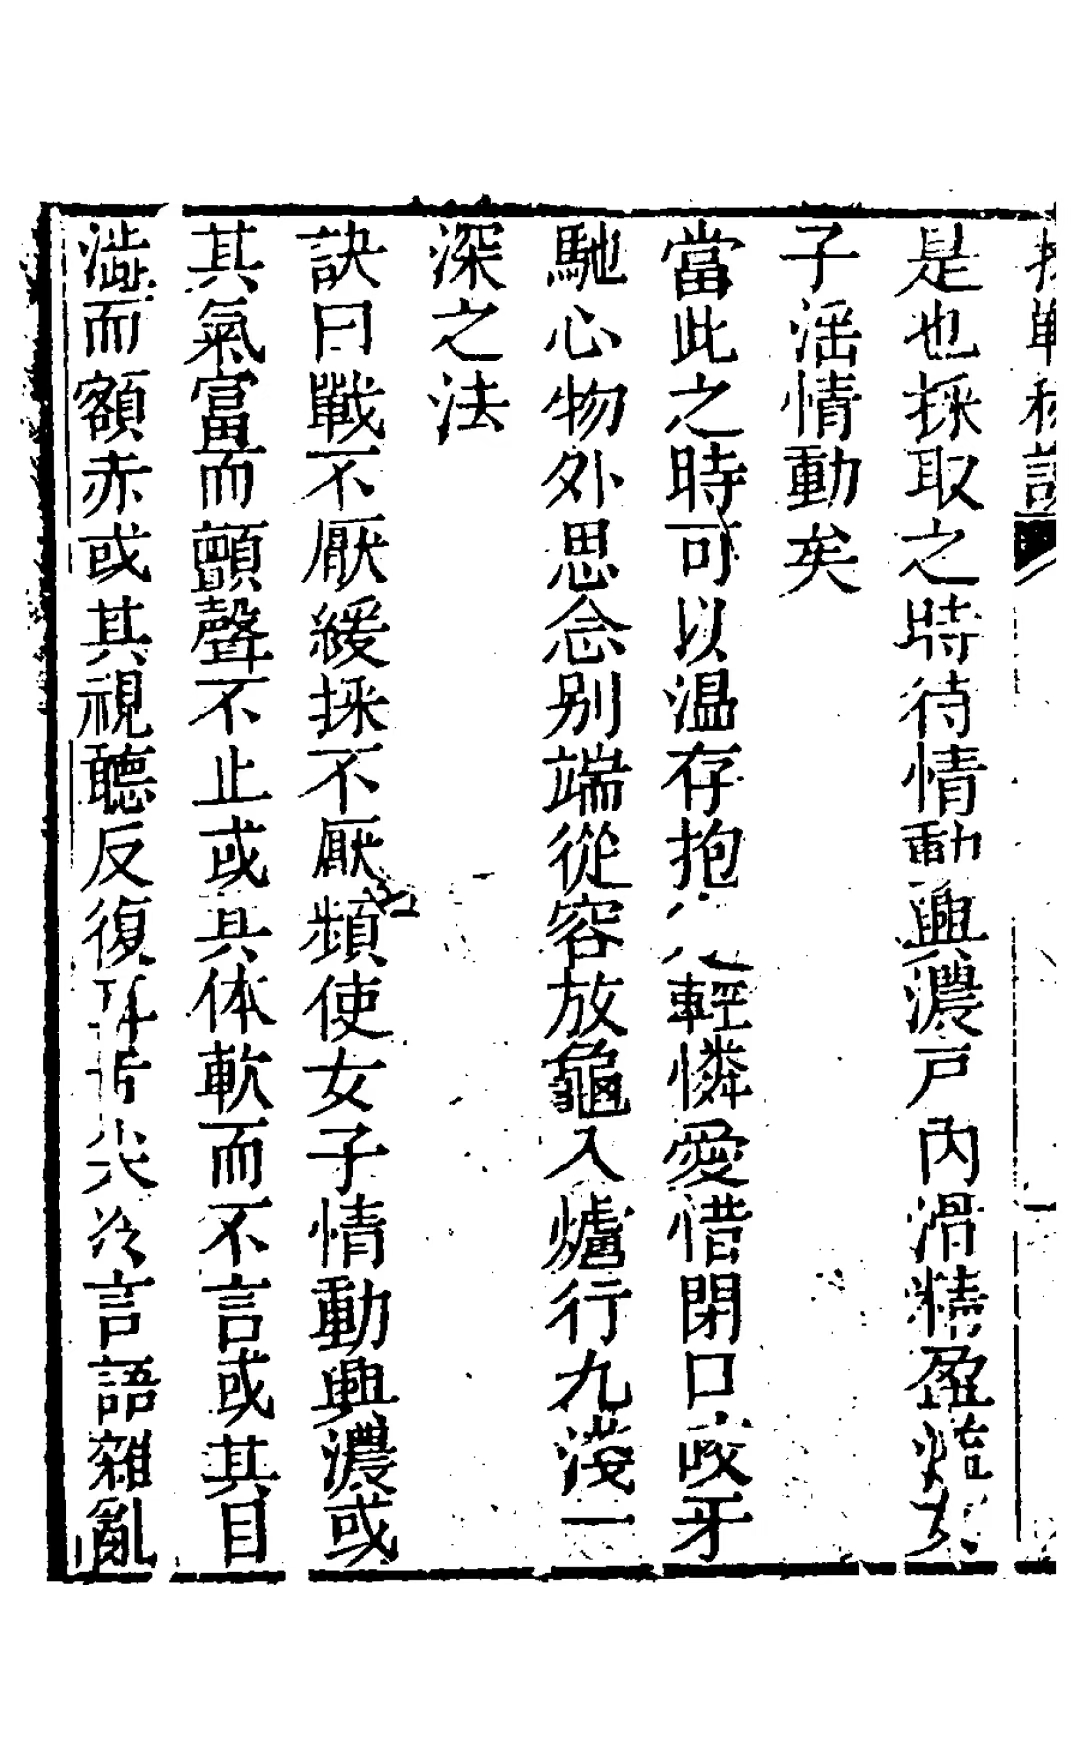 是也採取之時待情動興濃戶内滑精盈
子滛情動矣
當此之時可以温存抱輕憐愛惜閉口咬牙
馳心物外思念别端從容放龜入爐行九淺一
深之法
訣曰戰不厭緩採不厭頻使女子情動興濃或
其氣富而顫聲不止或其体軟而不言或其目
澁而額赤或其視聽反復尖冷言語雜亂